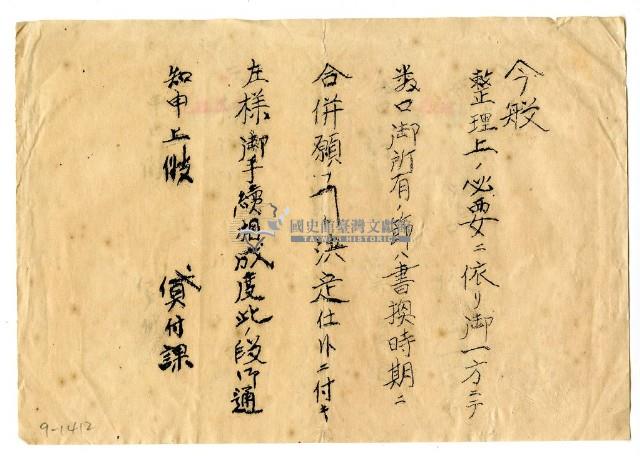 今般
整理上ノ必要ニ依リ御一方ニテ
数口御所有ノ節ハ書換時期ニ
合併願フ事ニ決定仕候ニ付キ
左様御手続相成度此ノ段御通
知申上候
貸付課
國史館臺灣文獻館
TAIWAN HISTORICA
9-1412